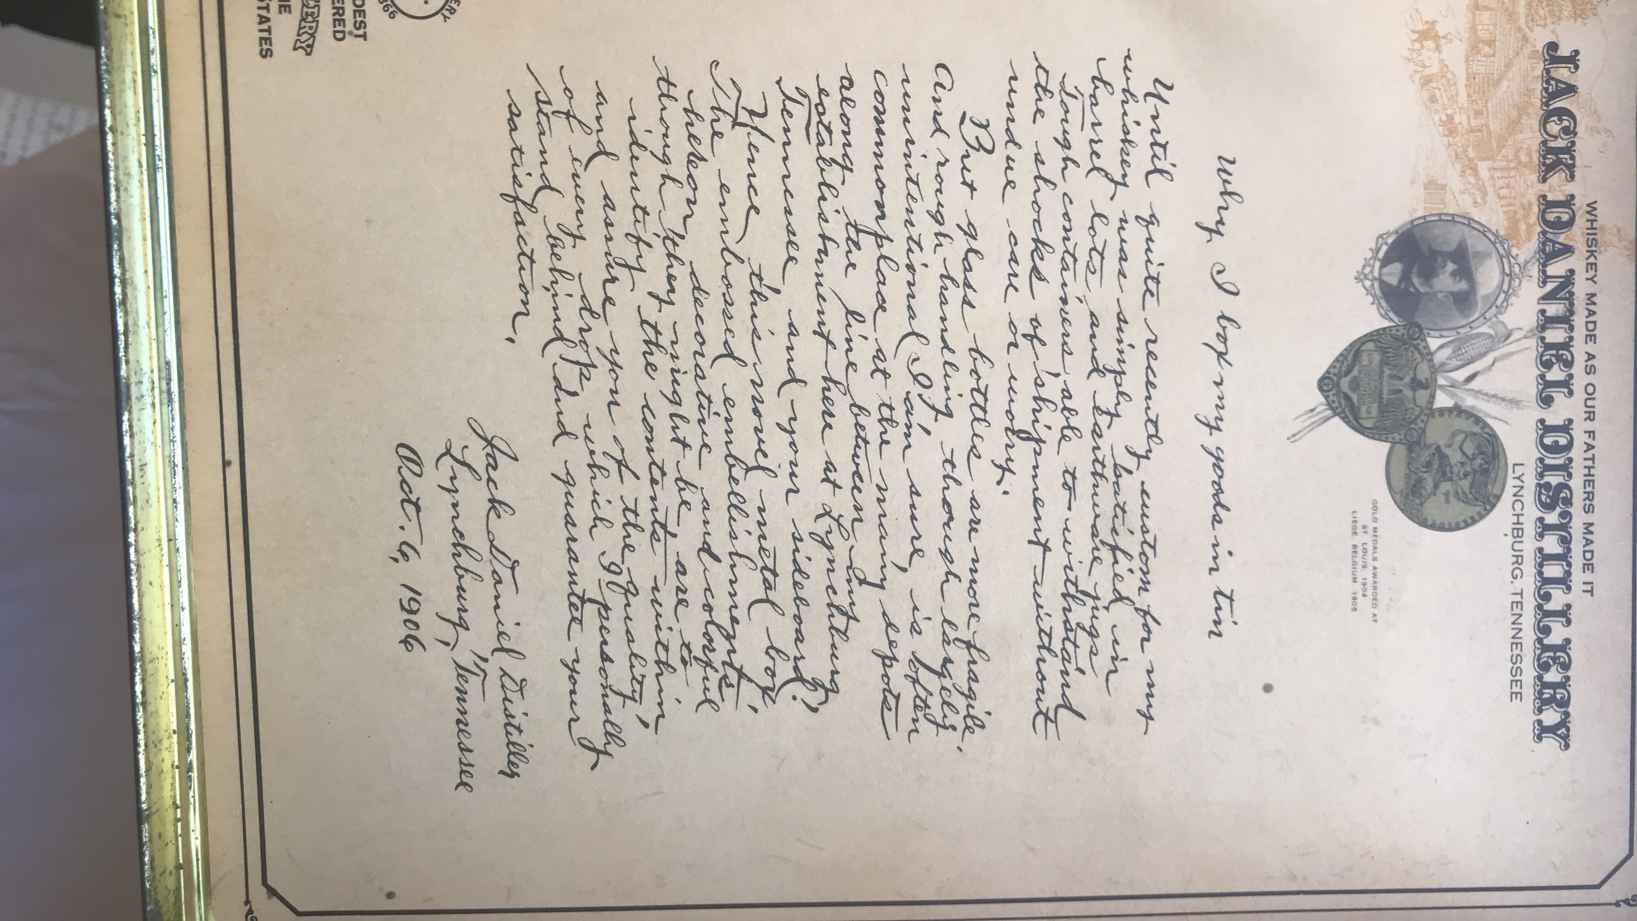 WHISKEY MADE AS OUR FATHERS MADE IT
JACK DANIEL DISTILLERY
LYNCHBURG, TENNESSEE
GOLD MEDALS AWARDED AT
ST. LOUIS, 1904
LIEGE, BELGIUM 1905
Why I box my goods in tin
Until quite recently custom for my
whiskey was simply batified in
barrel lots, and earthware jugs.
Tough containers able to withstand
the shocks of shipment without
undue care or worry.
But glass bottles are more fragile.
And rough handling, though largely
unintentional I am sure, is often
commonplace at the many depots
along the line between my
establishment here at Lynchburg,
Tennessee and your sideboard.
Hence this novel metal box
The embossed embellishments
hereon, decorative and colorful
though they might be, are to
identify the contents within
and assure you of the quality
of every drop which I personally
stand behind and guarantee your
satisfaction.
Jack Daniel Distiller
Lynchburg, Tennessee
Oct. 6, 1906
ERY
866
DEST
ERED
ERY
HE
STATES